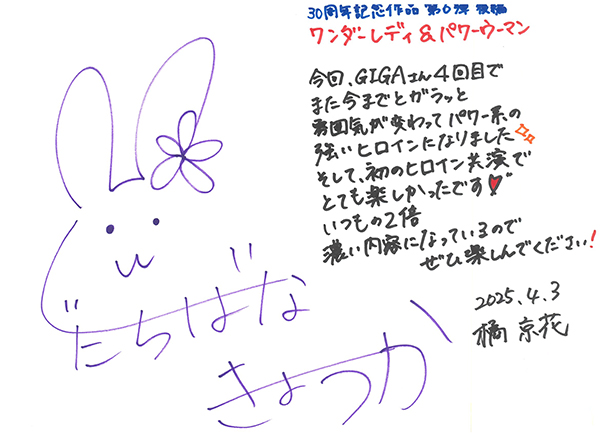 30周年記念作品 第0弾 後編
ワンダーレディ&パワーウーマン
今回、GIGAさん4回目で
また今までとガラッと
雰囲気が変わってパワー系の
強いヒロインになりました
そして、初のヒロイン共演で
とても楽しかったです
いつもの2倍
濃い内容になっているので
ぜひ楽しんでください!
2025.4.3
橘 京花
たちばな
きょうか